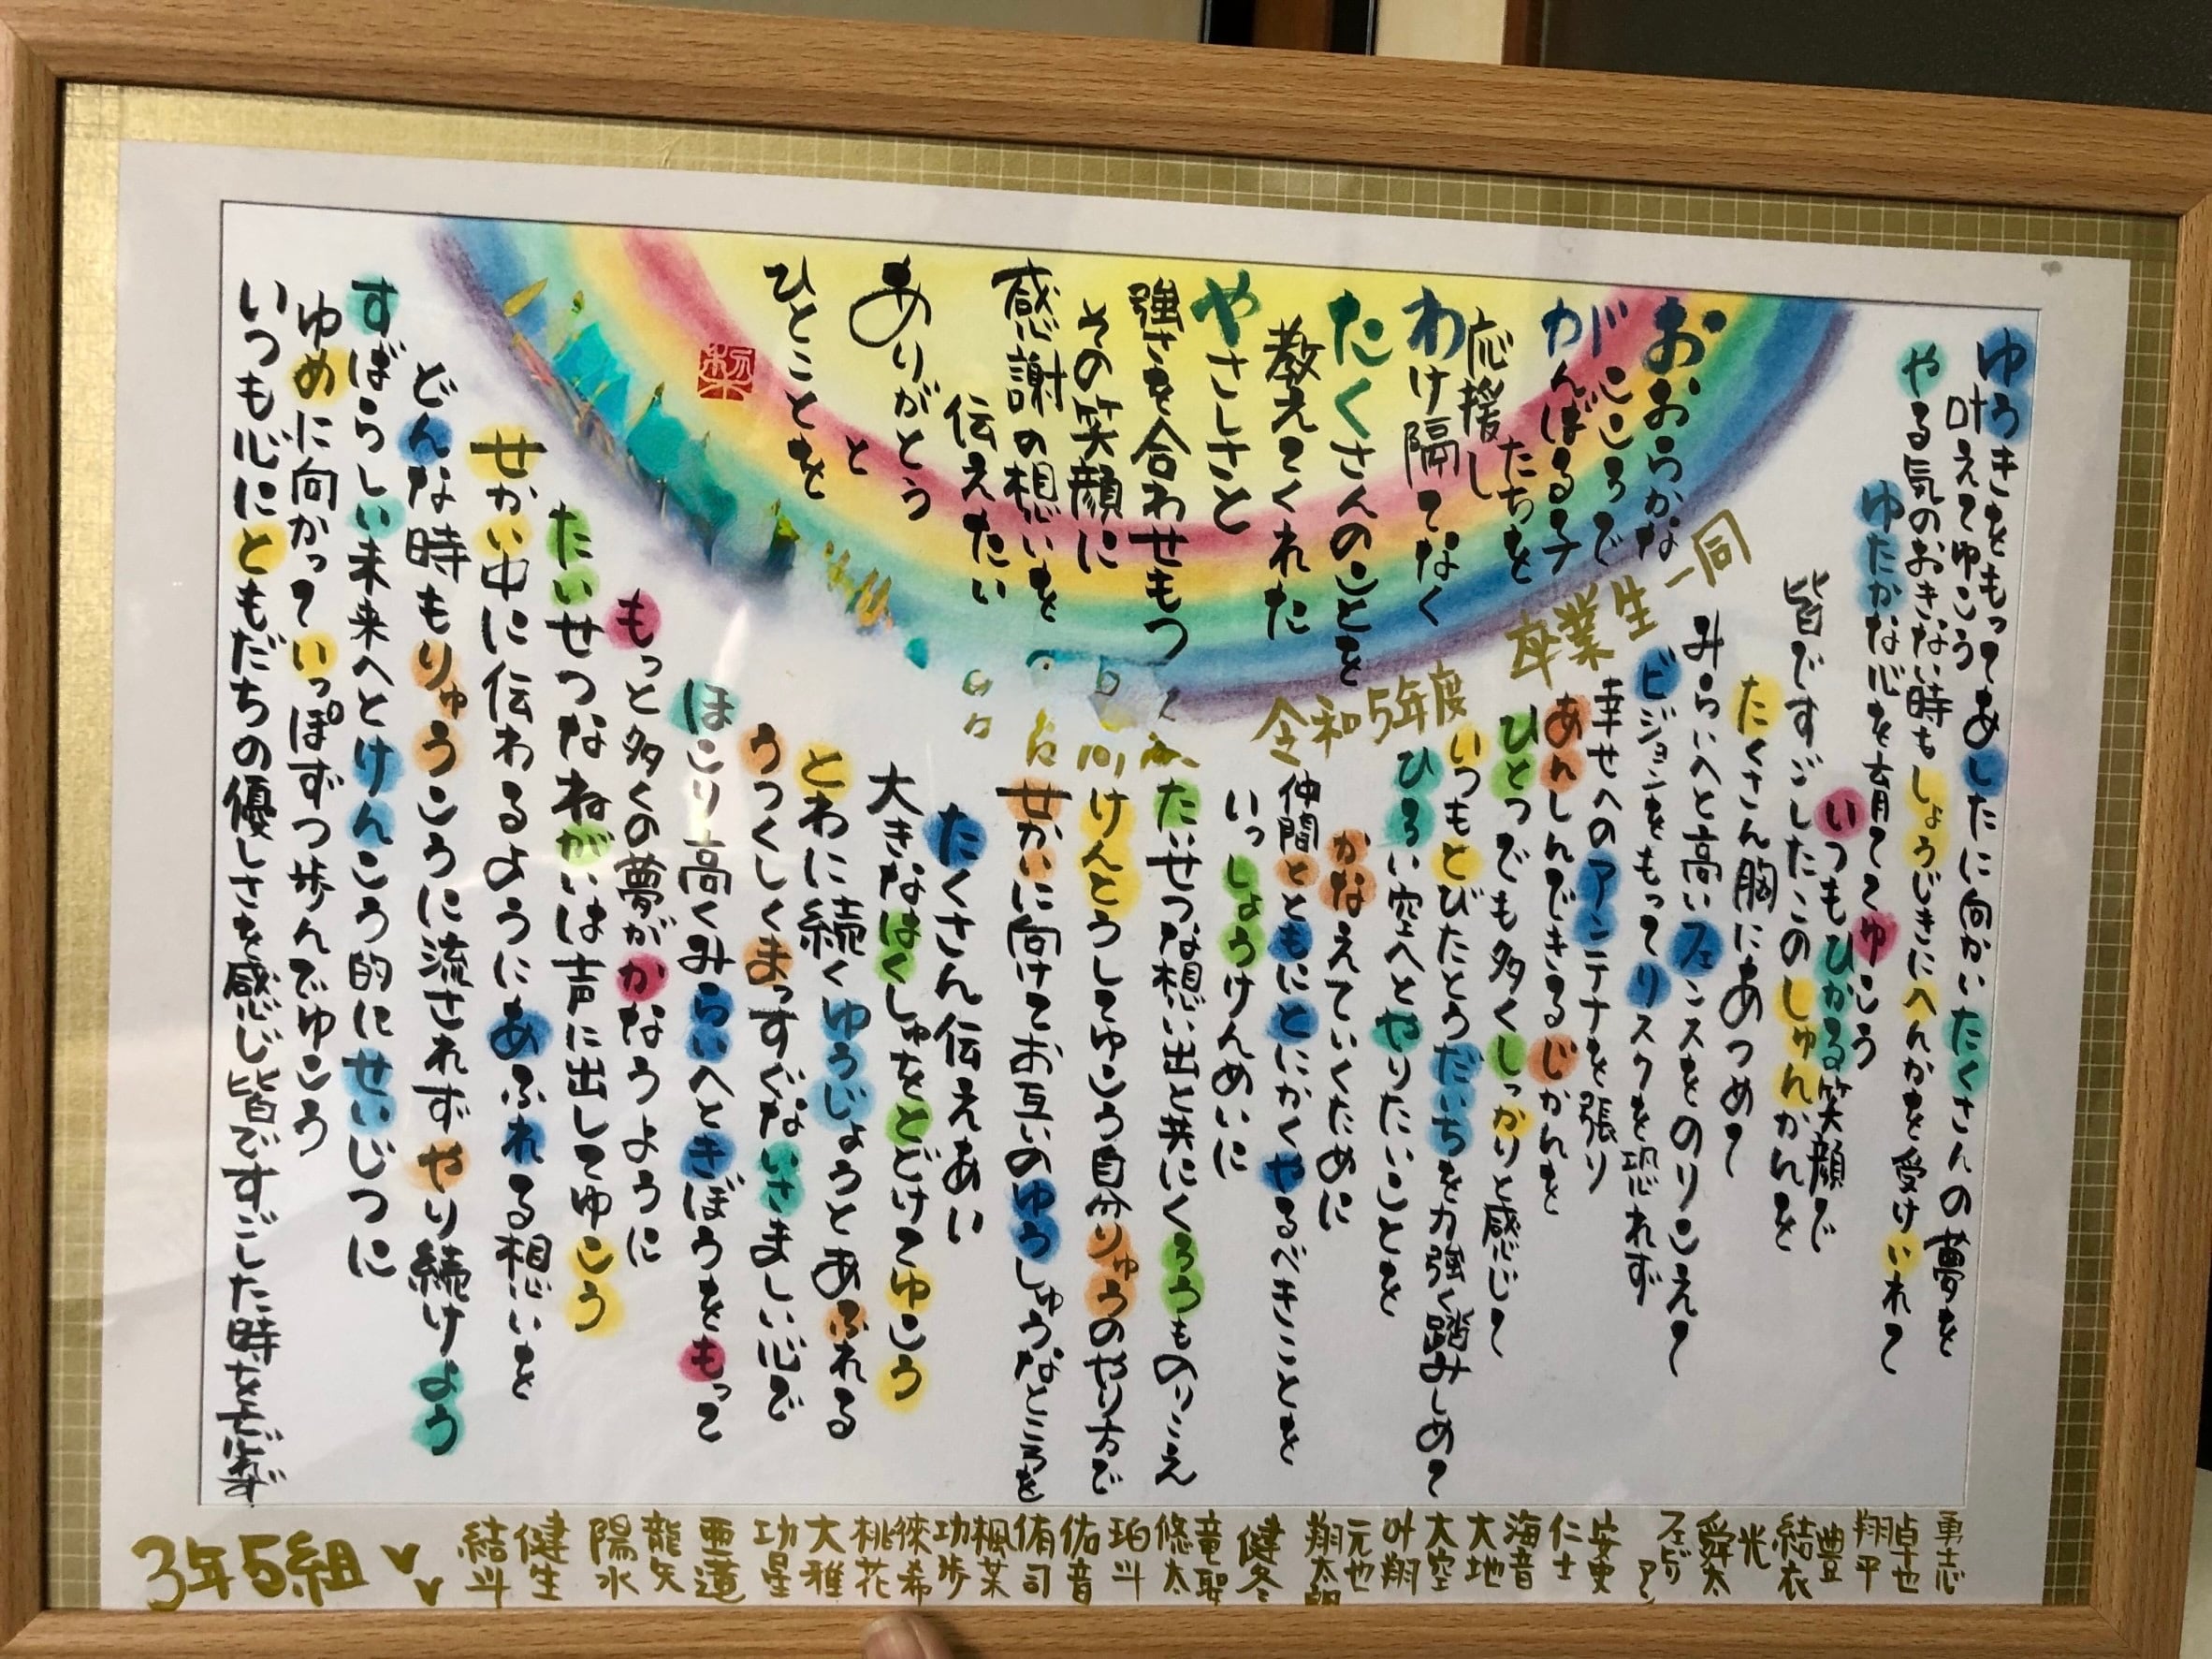 ゆうきをもってあしたに向かいたくさんの夢を
叶えてゆこう
やる気のおきない時もしょうじきにへんかを受けいれて
ゆたかな心を育ててゆこう
いつもひかる笑顔で
皆ですごしたこのしゅんかんを
たくさん胸にあつめて
みらいへと高いフェンスをのりこえて
ビジョンをもってリスクを恐れず
幸せへのアンテナを張り
あんしんできるじかんを
ひとつでも多くしっかりと感じて
いつもとびたとうだいちを力強く踏みしめて
ひろい空へとやりたいことを
かなえていくために
仲間とともにとにかくやるべきことを
いっしょうけんめいに
たいせつな想い出と共にくろうものりこえ
けんとうしてゆこう自分りゅうのやり方で
せかいに向けてお互いのゆうしゅうなところを
たくさん伝えあい
大きなはくしゅをとどけてゆこう
とわに続くゆうじょうとあふれる
うつくしくまっすぐないさましい心で
ほこり高くみらいへときぼうをもって
もっと多くの夢がかなうように
たいせつなねがいは声に出してゆこう
せかい中に伝わるようにあふれる想いを
どんな時もりゅうこうに流されずやり続けよう
すばらしい未来へとけんこう的にせいじつに
ゆめに向かっていっぽずつ歩んでゆこう
いつも心にともだちの優しさを感じ皆ですごした時を忘れず
おおらかな
こころで
がんばる子
たちを
応援し
わけ隔てなく
たくさんのことを
教えてくれた
やさしさと
強さを合わせもつ
その笑顔に
感謝の想いを
伝えたい
ありがとう
と
ひとことを
令和5年度 卒業生一同
勇志
卓也
翔平
豊
結衣
光
舜太
フェビリアン
安吏
仁士
海音
大地
大空
叶翔
元也
翔太郎
健冬
竜聖
悠太
珀斗
佑音
侑司
楓菜
功歩
徠希
桃花
大雅
功星
亜蓮
龍矢
陽水
健生
結斗
3年5組